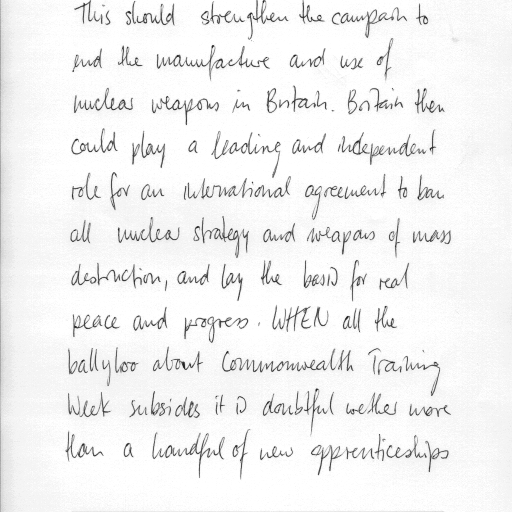 This should strengthen the campain to
end the manufacture and use of
nuclear weapons in Britain. Britain then
could play a leading and independent
role for an international agreement to ban
all nuclear strategy and weapons of mass
destruction, and lay the basis for real
peace and progress. WHEN all the
ballyloo about Commonwealth Training
Week subsides it is doubtful wether more
than a handful of new apprenticeships